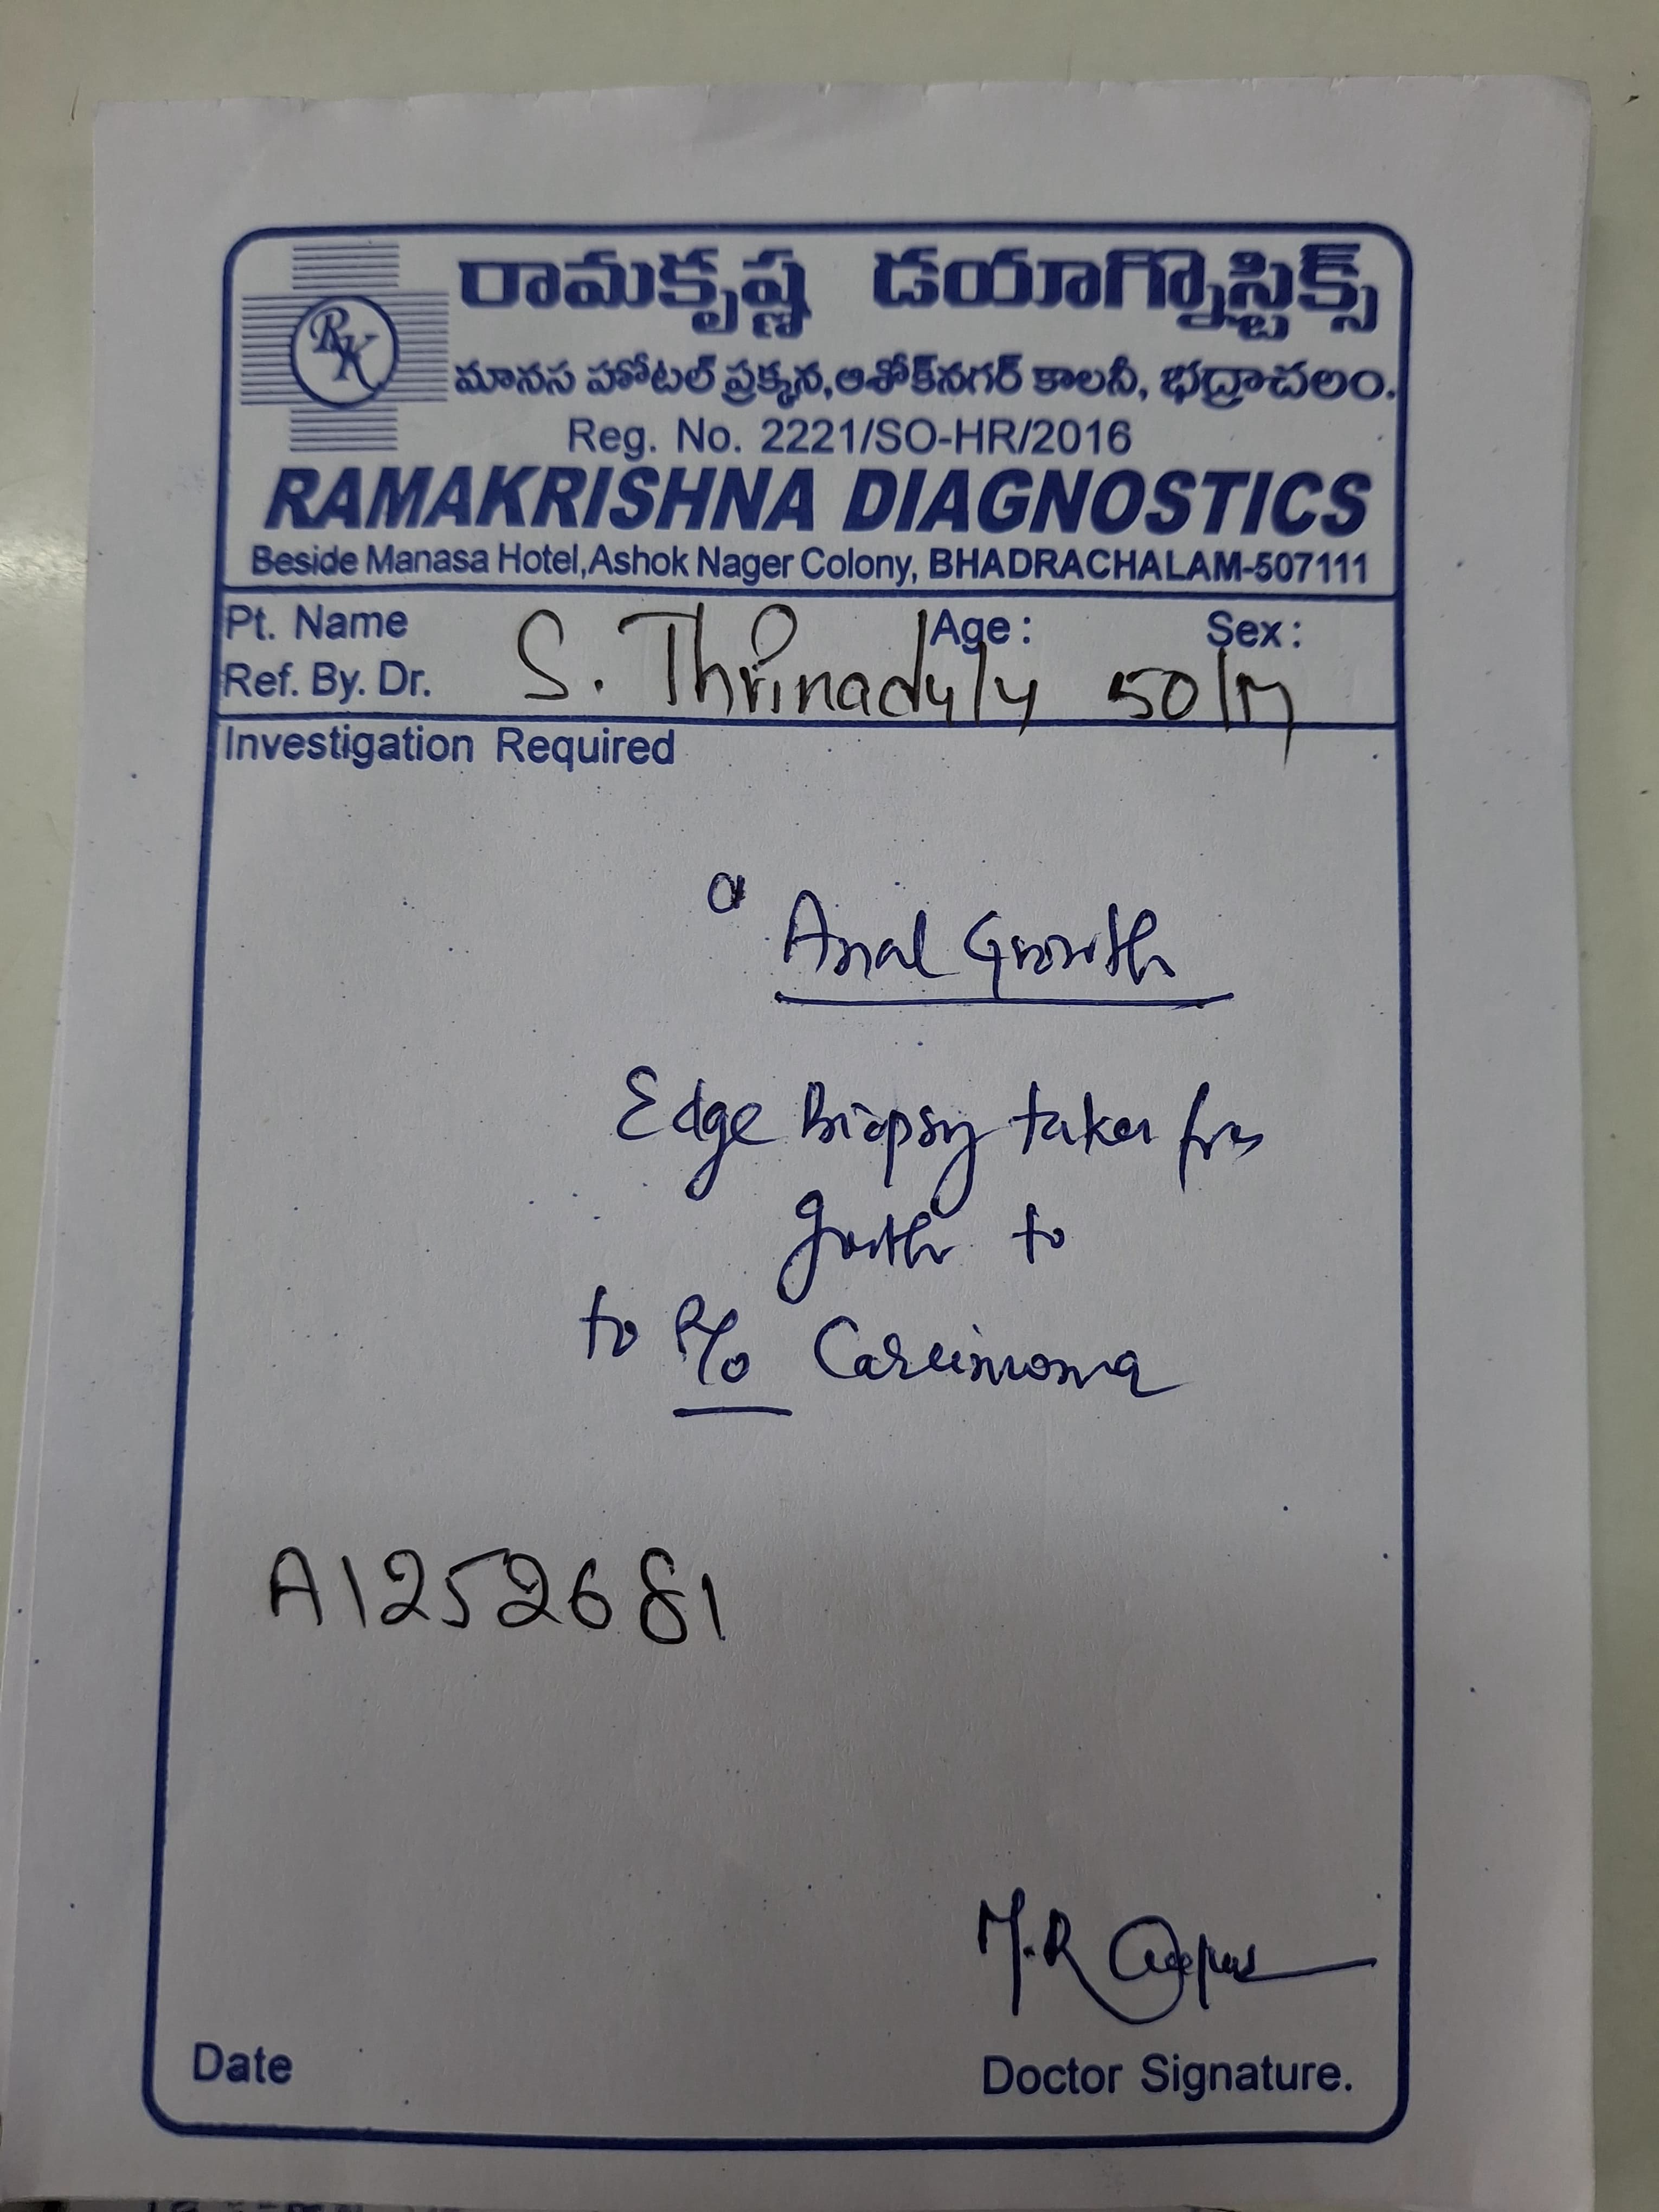 RK
రామకృష్ణ డయాగ్నొస్టిక్స్
మానస హోటల్ ప్రక్కన, అశోక్‌నగర్ కాలనీ, భద్రాచలం.
Reg. No. 2221/SO-HR/2016
RAMAKRISHNA DIAGNOSTICS
Beside Manasa Hotel, Ashok Nager Colony, BHADRACHALAM-507111
Pt. Name Age : Sex :
Ref. By. Dr. S. Thrinadulu 50/M
Investigation Required
Anal Growth
Edge Biopsy taken from
growth to
to R/o Carcinoma
A1252681
M.R
Date Doctor Signature.